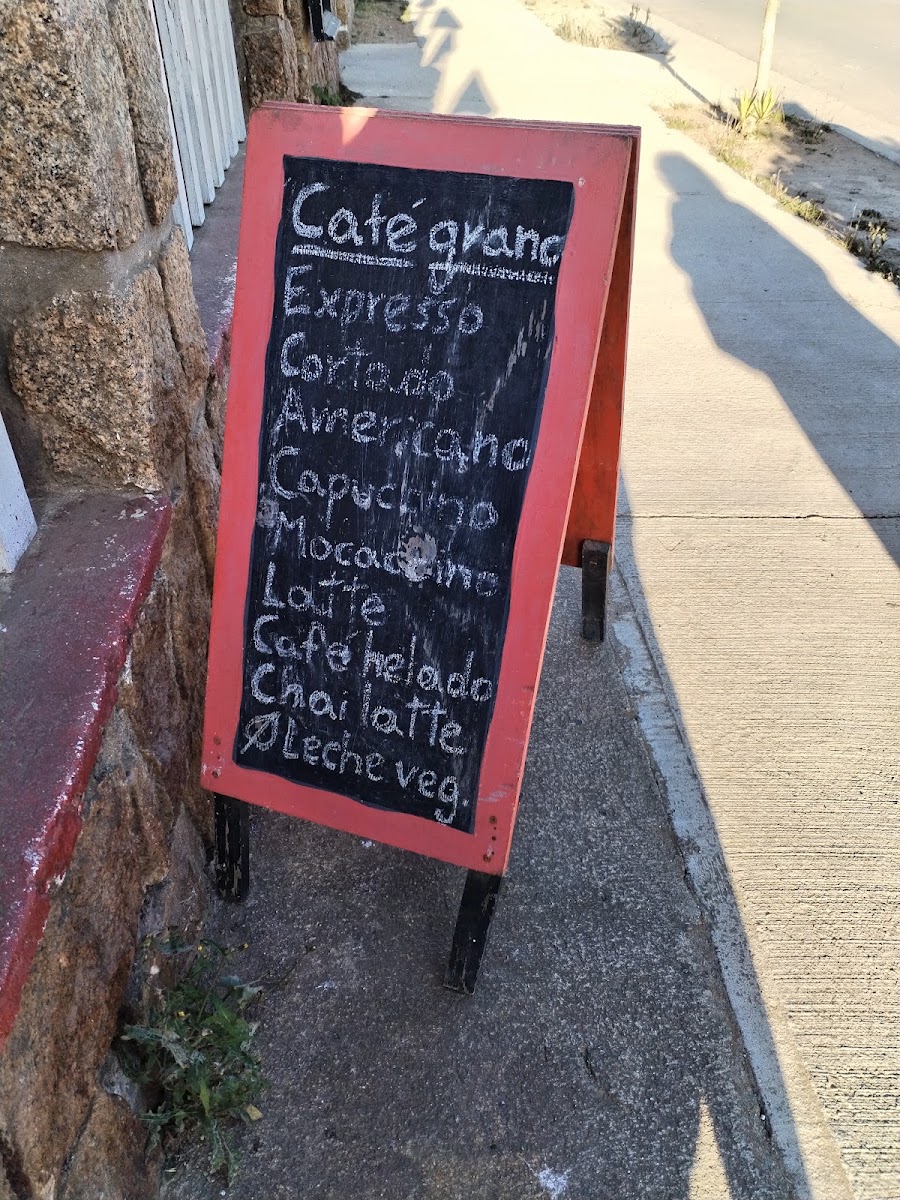 Café grano
Expresso
Cortado
Americano
Capuccino
Mocaccino
Latte
Café helado
Chai latte
Ø Leche veg.